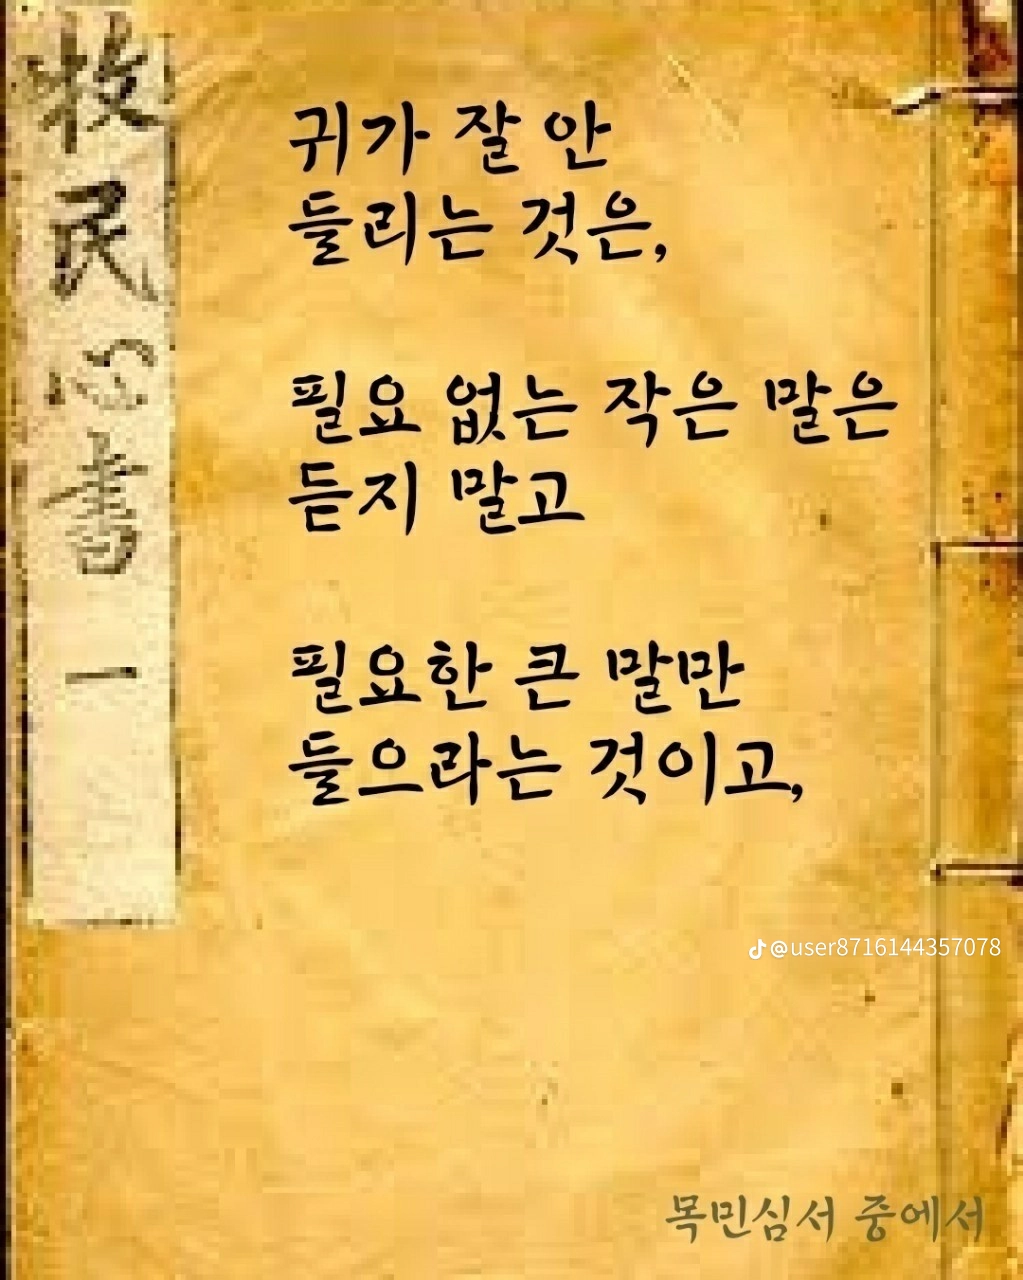 牧民心書 一
귀가 잘 안
들리는 것은,
필요 없는 작은 말은
듣지 말고
필요한 큰 말만
들으라는 것이고,
@user8716144357078
목민심서 중에서